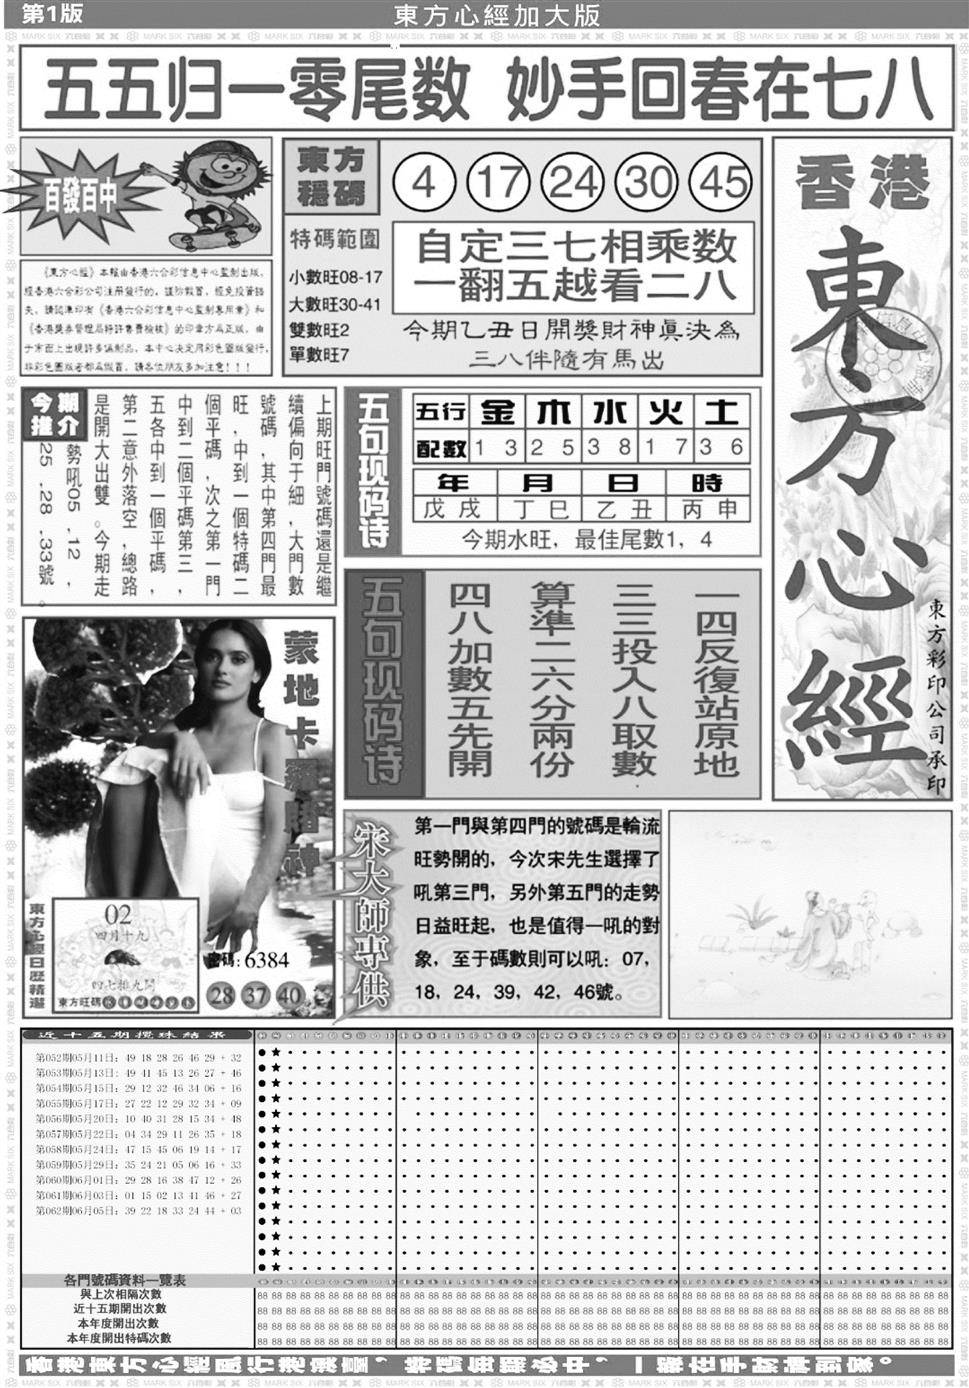 第1版
東方心經加大版
五五归一零尾数 妙手回春在七八
百發百中
《東方心經》本報由香港六合彩信息中心監制出版，
經香港六合彩公司注册發行的，謹防假冒，經免投資損
失，請認準印有《香港六合彩信息中心監制專用章》和
《香港獎券管理局特許售賣檢核》的印章方爲正版，由
于市面上出現許多僞制品，本中心决定用彩色圖版發行，
非彩色圖版者都爲假冒，請各位朋友多加注意！！！
東方
穩碼
4 17 24 30 45
特碼範圍
小數旺08-17
大數旺30-41
雙數旺2
單數旺7
自定三七相乘数
一翻五越看二八
今期乙丑日開獎財神真决為
三八伴隨有馬出
香港
東方心經
東方彩印公司承印
今期
推介
上期旺門號碼還是繼
續偏向于細，大門數
號碼，其中第四門最
旺，中到一個特碼二
個平碼，次之第一門
中到二個平碼第三，
五各中到一個平碼，
第二意外落空，總路
是開大出雙。今期走
勢吼05，12，
25，28，33號。
五句现码诗
五行 金 木 水 火 土
配數 1 3 2 5 3 8 1 7 3 6
年 月 日 時
戊戌 丁巳 乙丑 丙申
今期水旺，最佳尾數1，4
五句现码诗
一四反復站原地
三三投入八取數
算準二六分兩份
四八加數五先開
蒙地卡羅賭神
東方心經日歷精選
02
四月十九
四七拍九開
東方旺碼
密碼:6384
28 37 40
宋大師專供
第一門與第四門的號碼是輪流
旺勢開的，今次宋先生選擇了
吼第三門，另外第五門的走勢
日益旺起，也是值得一吼的對
象，至于碼數則可以吼：07，
18，24，39，42，46號。
近十五期攪珠結果
第052期05月11日：49 18 28 26 46 29 + 32
第053期05月13日：49 41 45 13 26 27 + 46
第054期05月15日：29 12 32 46 34 06 + 16
第055期05月17日：27 22 12 29 32 34 + 09
第056期05月20日：10 40 31 28 15 34 + 48
第057期05月22日：04 34 29 11 26 35 + 18
第058期05月24日：47 15 45 06 19 14 + 17
第059期05月29日：35 24 21 05 06 16 + 33
第060期06月01日：29 28 16 38 47 12 + 26
第061期06月03日：01 15 02 13 41 46 + 27
第062期06月05日：39 22 18 33 24 44 + 03
各門號碼資料一覽表
與上次相隔次數
近十五期開出次數
本年度開出次數
本年度開出特碼次數
香港東方心經風行港澳臺，特碼每期必中，一報在手財神到家。